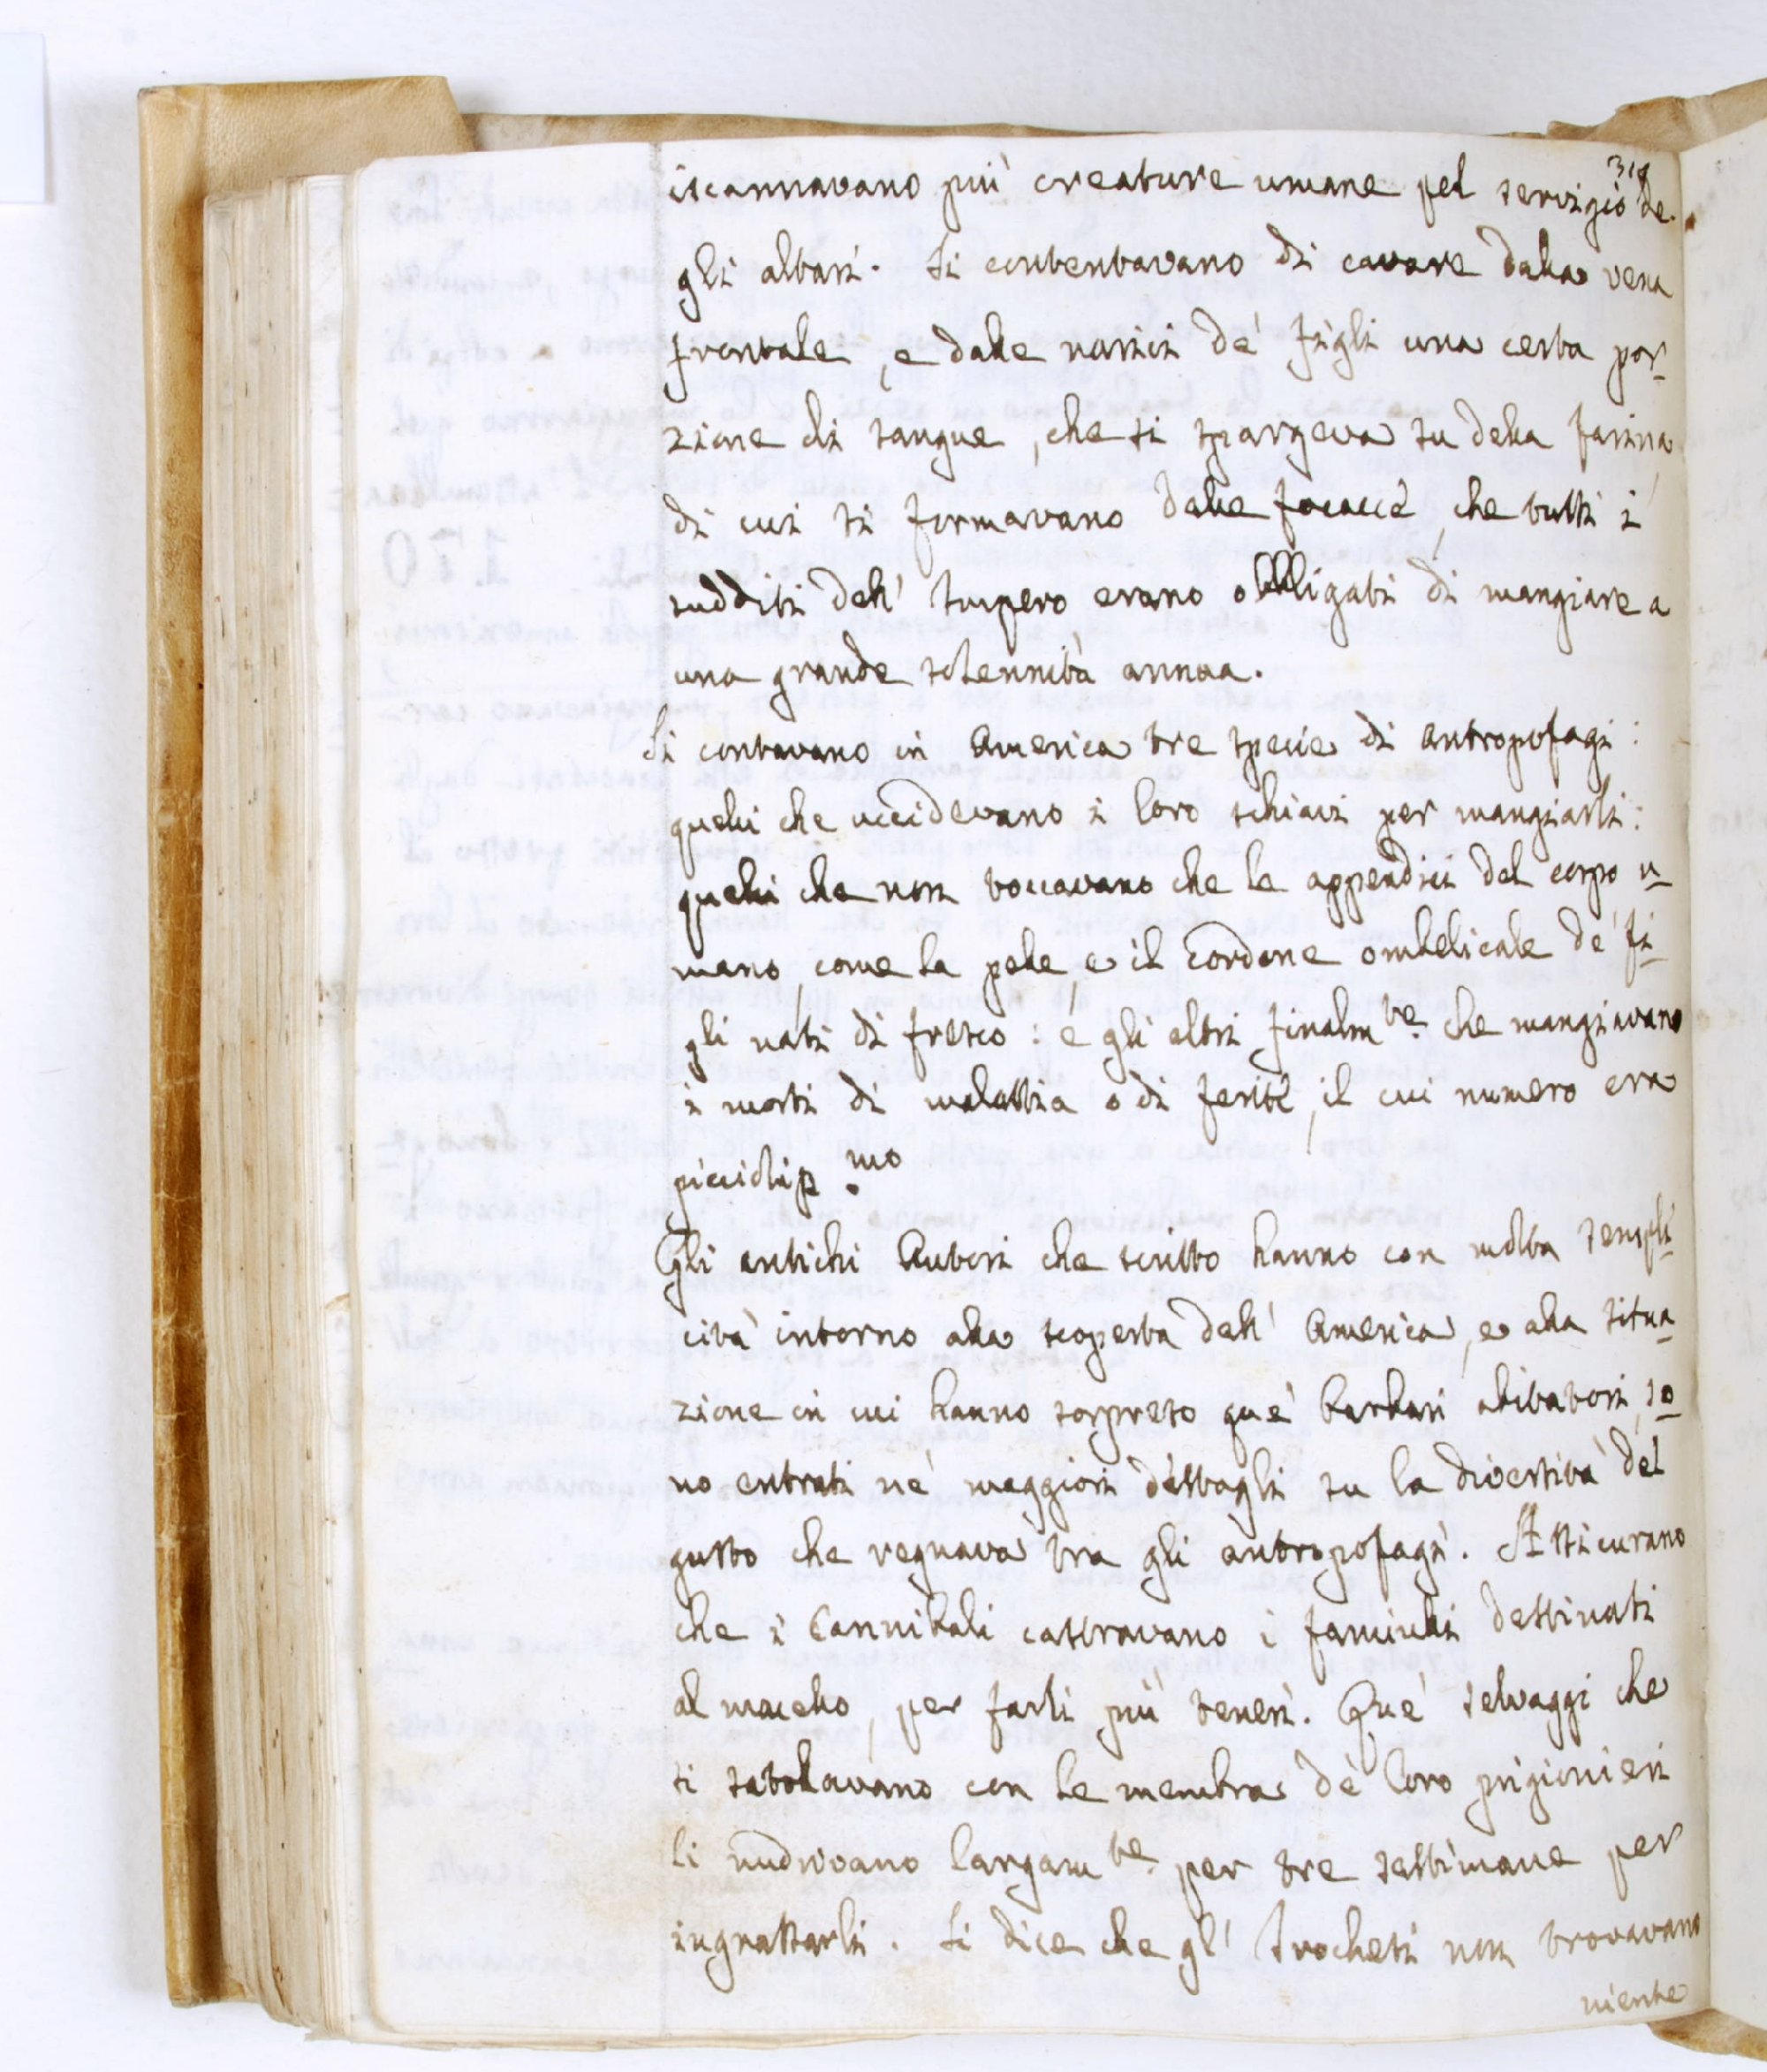 314
iscannavano più creature umane pel servigio de-
gli altari. Si contentavano di cavare dalla vena
frontale, e dalle narici de' figli una certa por-
zione di sangue, che si spargeva su della farina
di cui si formavano delle focacce, che tutti i
sudditi dell' Impero erano obbligati di mangiare a
una grande solennità annua.
Si contavano in America tre specie di Antropofagi:
quelli che uccidevano i loro schiavi per mangiarli:
quelli che non toccavano che le appendici del corpo u-
mano, come la pelle e il cordone ombelicale de' fi-
gli nati di fresco: e gli altri finalmte. che mangiavano
i morti di malattia o di ferite, il cui numero era
picciolis.mo
Gli antichi Autori che scritto hanno con molta sempli-
cità intorno alla scoperta dell' America, e alla situa-
zione in cui hanno sorpreso que' barbari abitatori, so-
no entrati ne' maggiori dettagli su la diversità del
gusto che regnava tra gli antropofagi. Assicurano
che i Cannibali castravano i fanciulli destinati
al macello, per farli più teneri. Que' selvaggi che
si satollavano con le membra de' loro prigionieri
li nudrivano largamte. per tre settimane per
ingrassarli. Si dice che gl' Irochesi non trovavano
niente